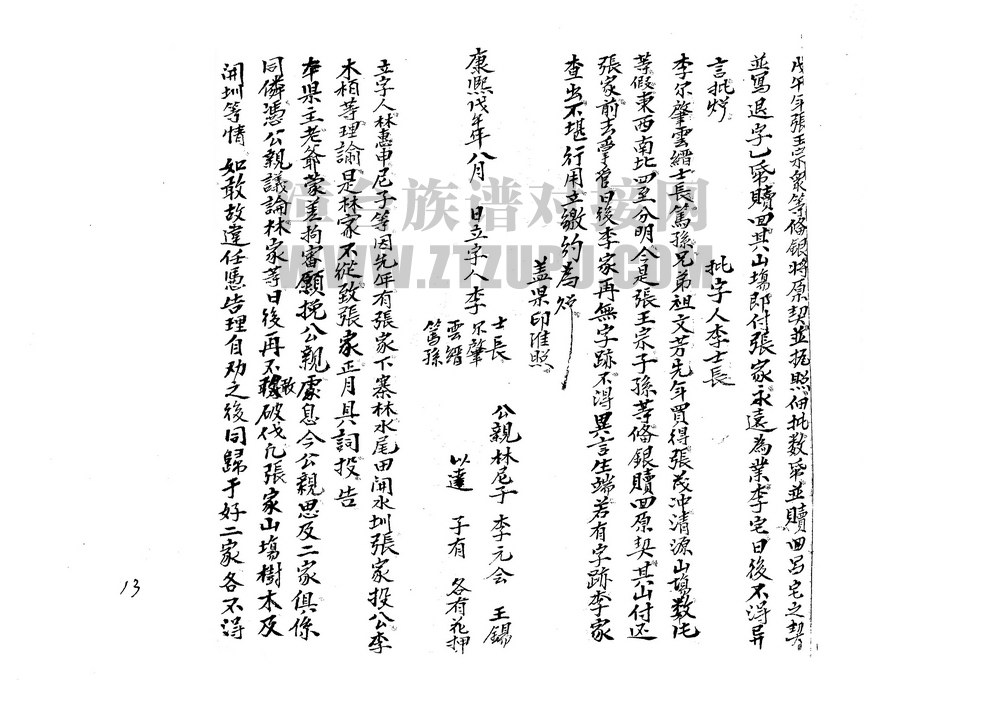 戊午年張玉宗衆等俻銀將原契並執照佃批数帋並贖回呂宅之契
並寫退字乙帋贖回其山塲即付張家永遠為業李宅日後不得异
言批炤
批字人李士長
李尔肇雲縉士長篤孫兄弟祖文芳先年買得張茂冲清源山塲数片
等假東西南北四至分明今是張王宗子孫等俻銀贖回原契其山付还
張家前去掌管日後李家再無字跡不得異言生端若有字跡李家
查出不堪行用立繳約為炤
盖县印准照
康熙戊午年八月 日立字人李 士長 尔肇 雲縉 篤孫
公親林尼子 李元会 王錫
以達 子有 各有花押
立字人林惠申尼子等因先年有張家下寨林水尾田開水圳張家投公李
木栢等理諭是林家不從致張家正月具詞投告
本县主老爺蒙差拘審願挽公親處息今公親思及二家俱係
同隣憑公親議論林家等日後再不敢破伐凢張家山塲樹木及
開圳等情 如敢故違任憑告理自劝之後同歸于好二家各不得
13
漳台族谱对接网
WWW.ZTZUPU.COM